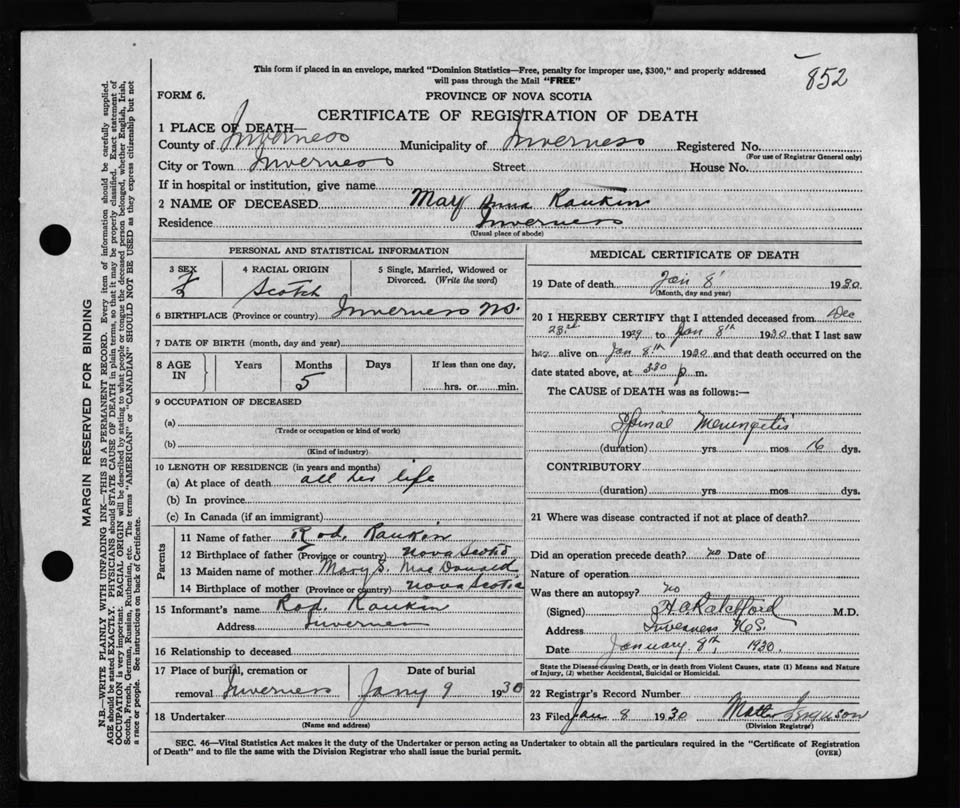 852
This form if placed in an envelope, marked "Dominion Statistics—Free, penalty for improper use, $300," and properly addressed
will pass through the Mail "FREE"
FORM 6. PROVINCE OF NOVA SCOTIA
CERTIFICATE OF REGISTRATION OF DEATH
1 PLACE OF DEATH—
County of Inverness Municipality of Inverness Registered No.
(For use of Registrar General only)
City or Town Inverness Street House No.
If in hospital or institution, give name
2 NAME OF DECEASED Mary Anna Rankin
Residence Inverness
(Usual place of abode)
PERSONAL AND STATISTICAL INFORMATION
3 SEX F 4 RACIAL ORIGIN Scotch 5 Single, Married, Widowed or
Divorced. (Write the word)
6 BIRTHPLACE (Province or country) Inverness NS.
7 DATE OF BIRTH (month, day and year)
8 AGE IN Years Months 5 Days If less than one day,
hrs. or min.
9 OCCUPATION OF DECEASED
(a)
(Trade or occupation or kind of work)
(b)
(Kind of industry)
10 LENGTH OF RESIDENCE (in years and months)
(a) At place of death all her life
(b) In province
(c) In Canada (if an immigrant)
Parents
11 Name of father Rod. Rankin
12 Birthplace of father (Province or country) Nova Scotia
13 Maiden name of mother Mary S. MacDonald
14 Birthplace of mother (Province or country) Nova Scotia
15 Informant's name Rod. Rankin
Address Inverness
16 Relationship to deceased
17 Place of burial, cremation or Date of burial
removal Inverness Jany 9 1930
18 Undertaker
(Name and address)
MEDICAL CERTIFICATE OF DEATH
19 Date of death Jan 8 1930
(Month, day and year)
20 I HEREBY CERTIFY that I attended deceased from Dec
23rd 1929 to Jan 8th 1930 that I last saw
her alive on Jan 8th 1930 and that death occurred on the
date stated above, at 330 p m.
The CAUSE of DEATH was as follows:—
Spinal Meningitis
(duration) yrs mos 16 dys.
CONTRIBUTORY
(duration) yrs mos dys.
21 Where was disease contracted if not at place of death?
Did an operation precede death? no Date of
Nature of operation
Was there an autopsy? no
(Signed) H A Ratchford M.D.
Address Inverness N.S.
Date January 8th, 1930.
State the Disease causing Death, or in death from Violent Causes, state (1) Means and Nature
of Injury, (2) whether Accidental, Suicidal or Homicidal.
22 Registrar's Record Number
23 Filed Jan 8 1930 Ferguson
(Division Registrar)
SEC. 46—Vital Statistics Act makes it the duty of the Undertaker or person acting as Undertaker to obtain all the particulars required in the "Certificate of Registration
of Death" and to file the same with the Division Registrar who shall issue the burial permit. (OVER)
MARGIN RESERVED FOR BINDING
N.B.—WRITE PLAINLY WITH UNFADING INK—THIS IS A PERMANENT RECORD. Every item of information should be carefully supplied.
AGE should be stated EXACTLY. PHYSICIANS should STATE CAUSE OF DEATH in plain terms, so that it may be properly classified. Exact statement of
OCCUPATION is very important. RACIAL ORIGIN will be described by stating to what people or tongue the deceased person belonged, whether English, Irish,
Scotch, French, German, Russian, Ruthenian, etc. The terms "AMERICAN" or "CANADIAN" SHOULD NOT BE USED as they express citizenship but not
a race or people. See instructions on back of Certificate.